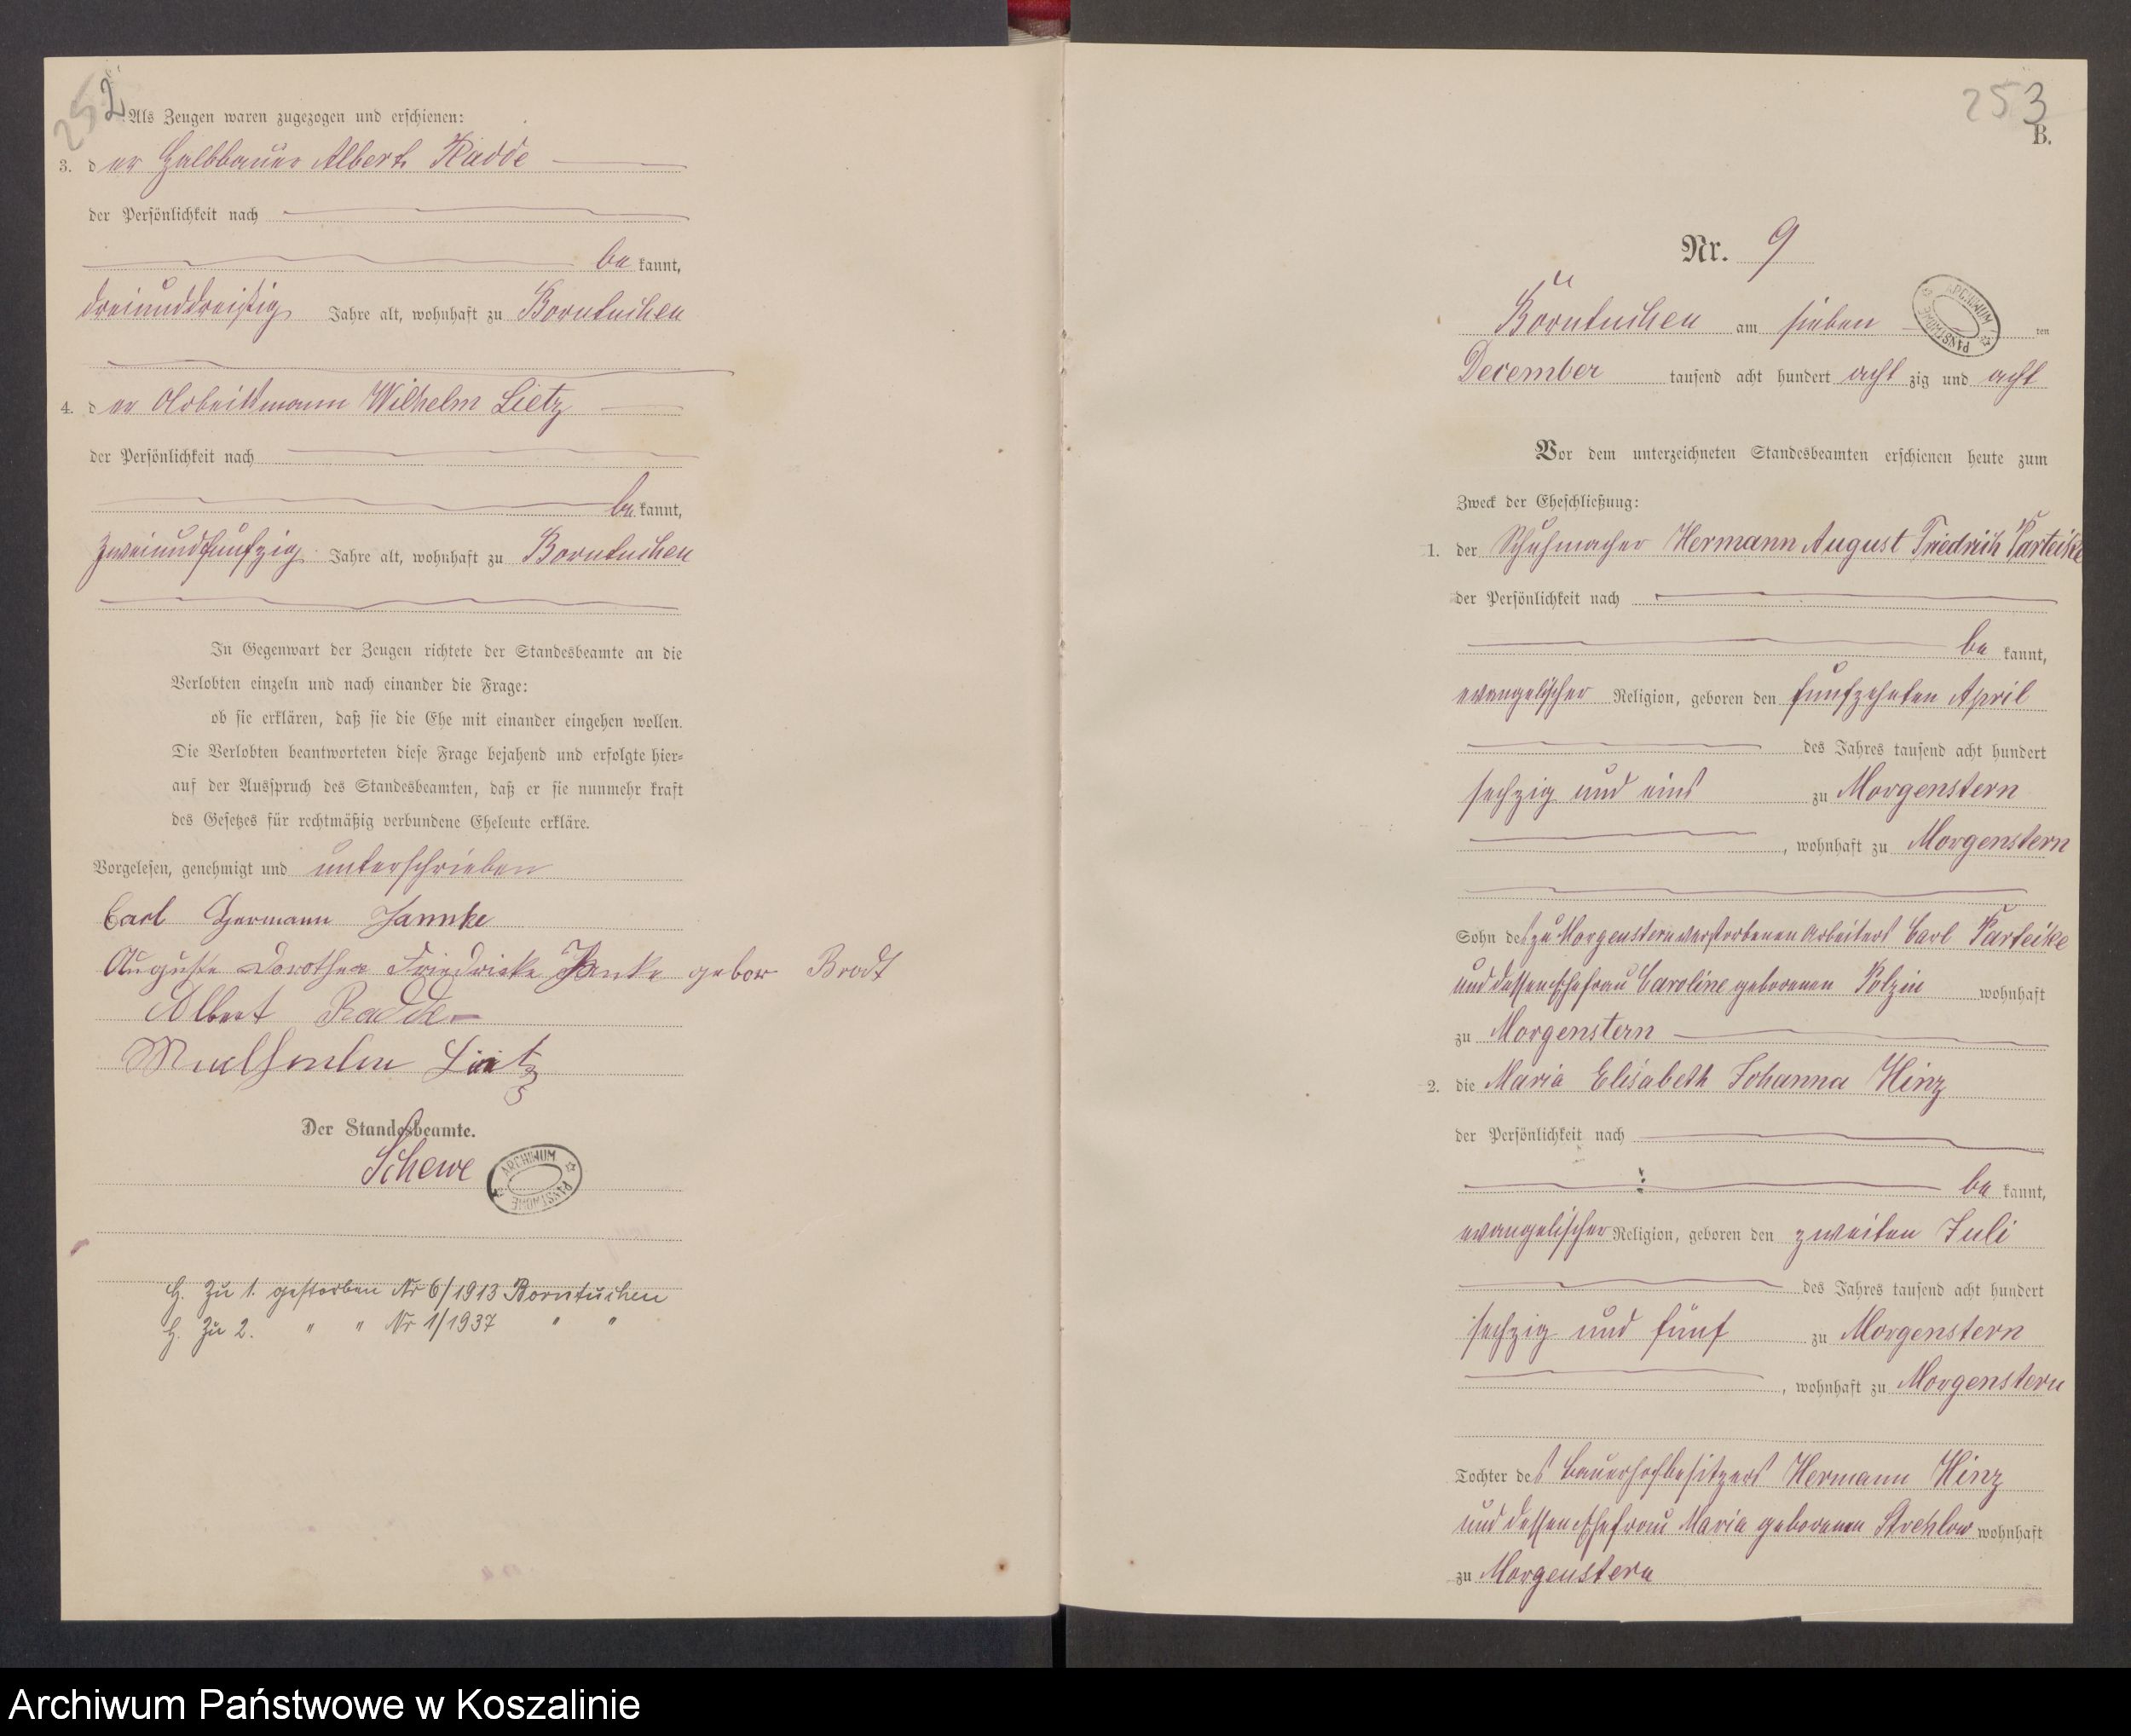 252
Als Zeugen waren zugezogen und erschienen:
3. der Halbbauer Albert Radde
der Persönlichkeit nach
bekannt,
dreiunddreißig Jahre alt, wohnhaft zu Borntuchen
4. der Arbeitsmann Wilhelm Lietz
der Persönlichkeit nach
bekannt,
zweiundfünfzig Jahre alt, wohnhaft zu Borntuchen
In Gegenwart der Zeugen richtete der Standesbeamte an die
Verlobten einzeln und nach einander die Frage:
ob sie erklären, daß sie die Ehe mit einander eingehen wollen.
Die Verlobten beantworteten diese Frage bejahend und erfolgte hier-
auf der Ausspruch des Standesbeamten, daß er sie nunmehr kraft
des Gesetzes für rechtmäßig verbundene Eheleute erkläre.
Vorgelesen, genehmigt und unterschrieben
Carl Hermann
Auguste Dorothea Friedricke gebor Brodt
Albert Radde
Lietz
Der Standesbeamte.
Schewe
ARCHIWUM PAŃSTWOWE
H. Zu 1. gestorben Nr 6/1913 Borntuchen
H. Zu 2. " " Nr 1/1937 " "
253
B.
Nr. 9
Borntuchen am sieben ten
ARCHIWUM PAŃSTWOWE
December tausend acht hundert achtzig und acht
Vor dem unterzeichneten Standesbeamten erschienen heute zum
Zweck der Eheschließung:
1. der Schuhmacher Hermann August Friedrich Parteike
der Persönlichkeit nach
bekannt,
evangelischer Religion, geboren den fünfzehnten April
des Jahres tausend acht hundert
sechzig und eins zu Morgenstern
, wohnhaft zu Morgenstern
Sohn des zu Morgenstern verstorbenen Arbeiters Carl Parteike
und dessen Ehefrau Caroline geborenen Polzin wohnhaft
zu Morgenstern
2. die Maria Elisabeth Johanna Hinz
der Persönlichkeit nach
bekannt,
evangelischer Religion, geboren den zweiten Juli
des Jahres tausend acht hundert
sechzig und fünf zu Morgenstern
, wohnhaft zu Morgenstern
Tochter des Bauerhofbesitzers Hermann Hinz
und dessen Ehefrau Maria geborenen Strehlow wohnhaft
zu Morgenstern
Archiwum Państwowe w Koszalinie